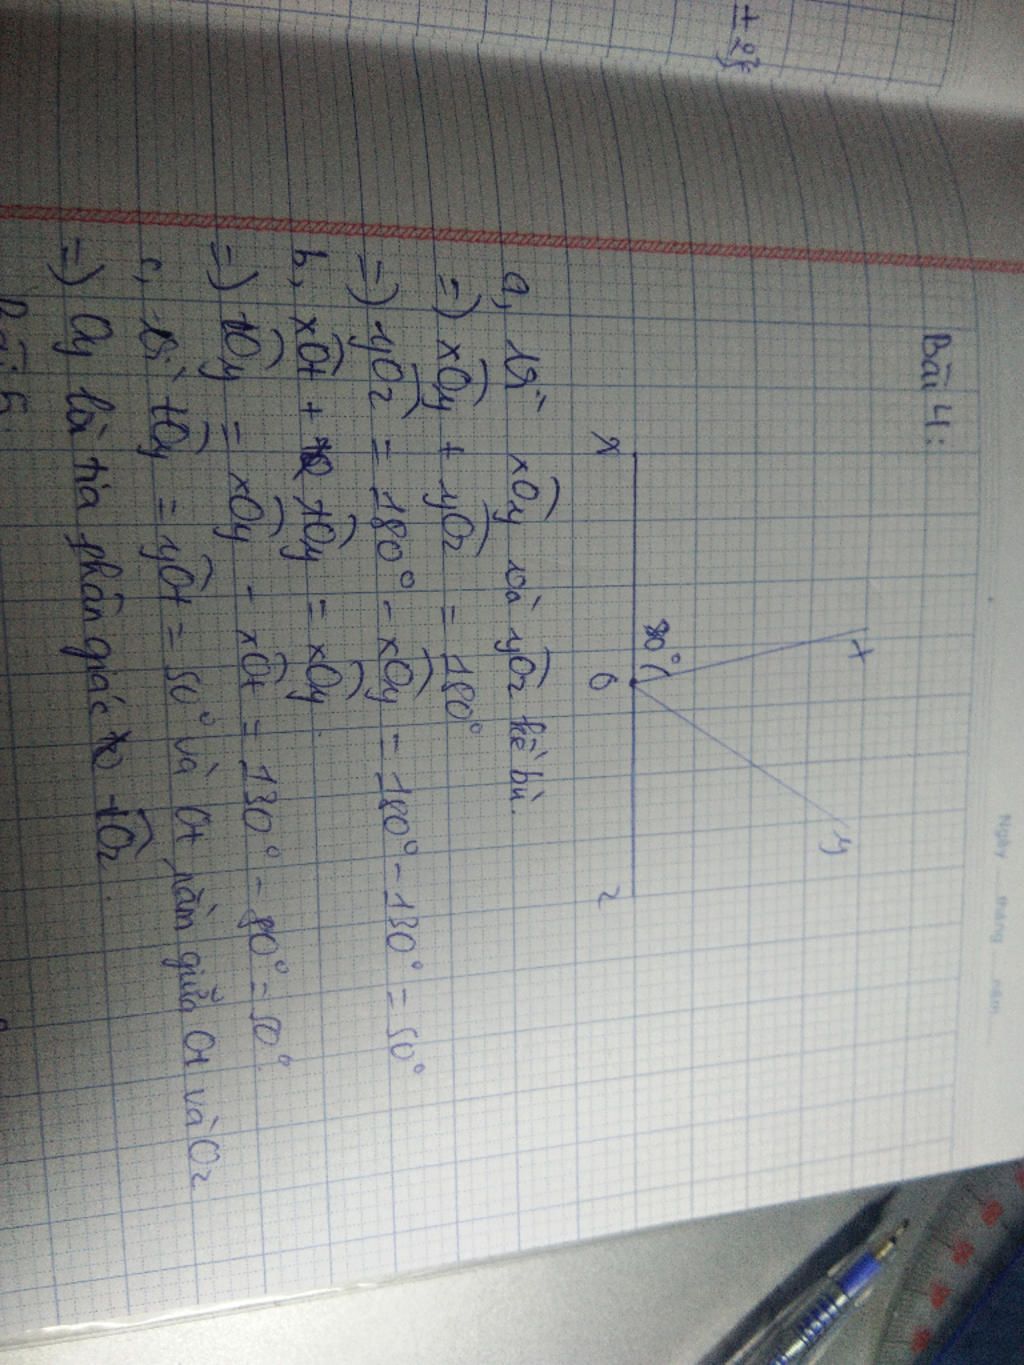 Bài 4:
t
y
80°
x
O
z
a, Vì xOy và yOz kề bù.
=) xOy + yOz = 180°
=) yOz = 180° - xOy = 180° - 130° = 50°
b, xOt + tOy = xOy
=) tOy = xOy - xOt = 130° - 80° = 50°
c, Vì tOy = yOt = 50° và Ot nằm giữa Ot và Oz
=) Oy là tia phân giác tOz.
Bài 5
Ngày tháng năm